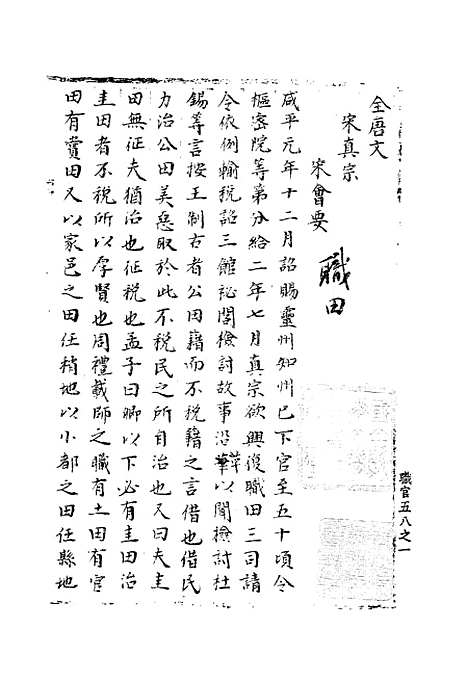 全唐文
宋真宗
宋會要
職田
咸平元年十二月詔賜靈州知州已下官至五十頃令
樞密院等第分給二年七月真宗欲興復職田三司請
令依例輸税詔三館祕閣檢討故事沿革以聞檢討杜
錫等言按王制古者公田藉而不税藉之言借也借民
力治公田美惡取於此不税民之所自治也又曰夫圭
田無征夫猶治也征税也孟子曰卿以下必有圭田治
圭田者不税所以厚賢也周禮載師之職有士田有官
田有賞田又以家邑之田任稍地以小都之田任縣地
職官五八之一